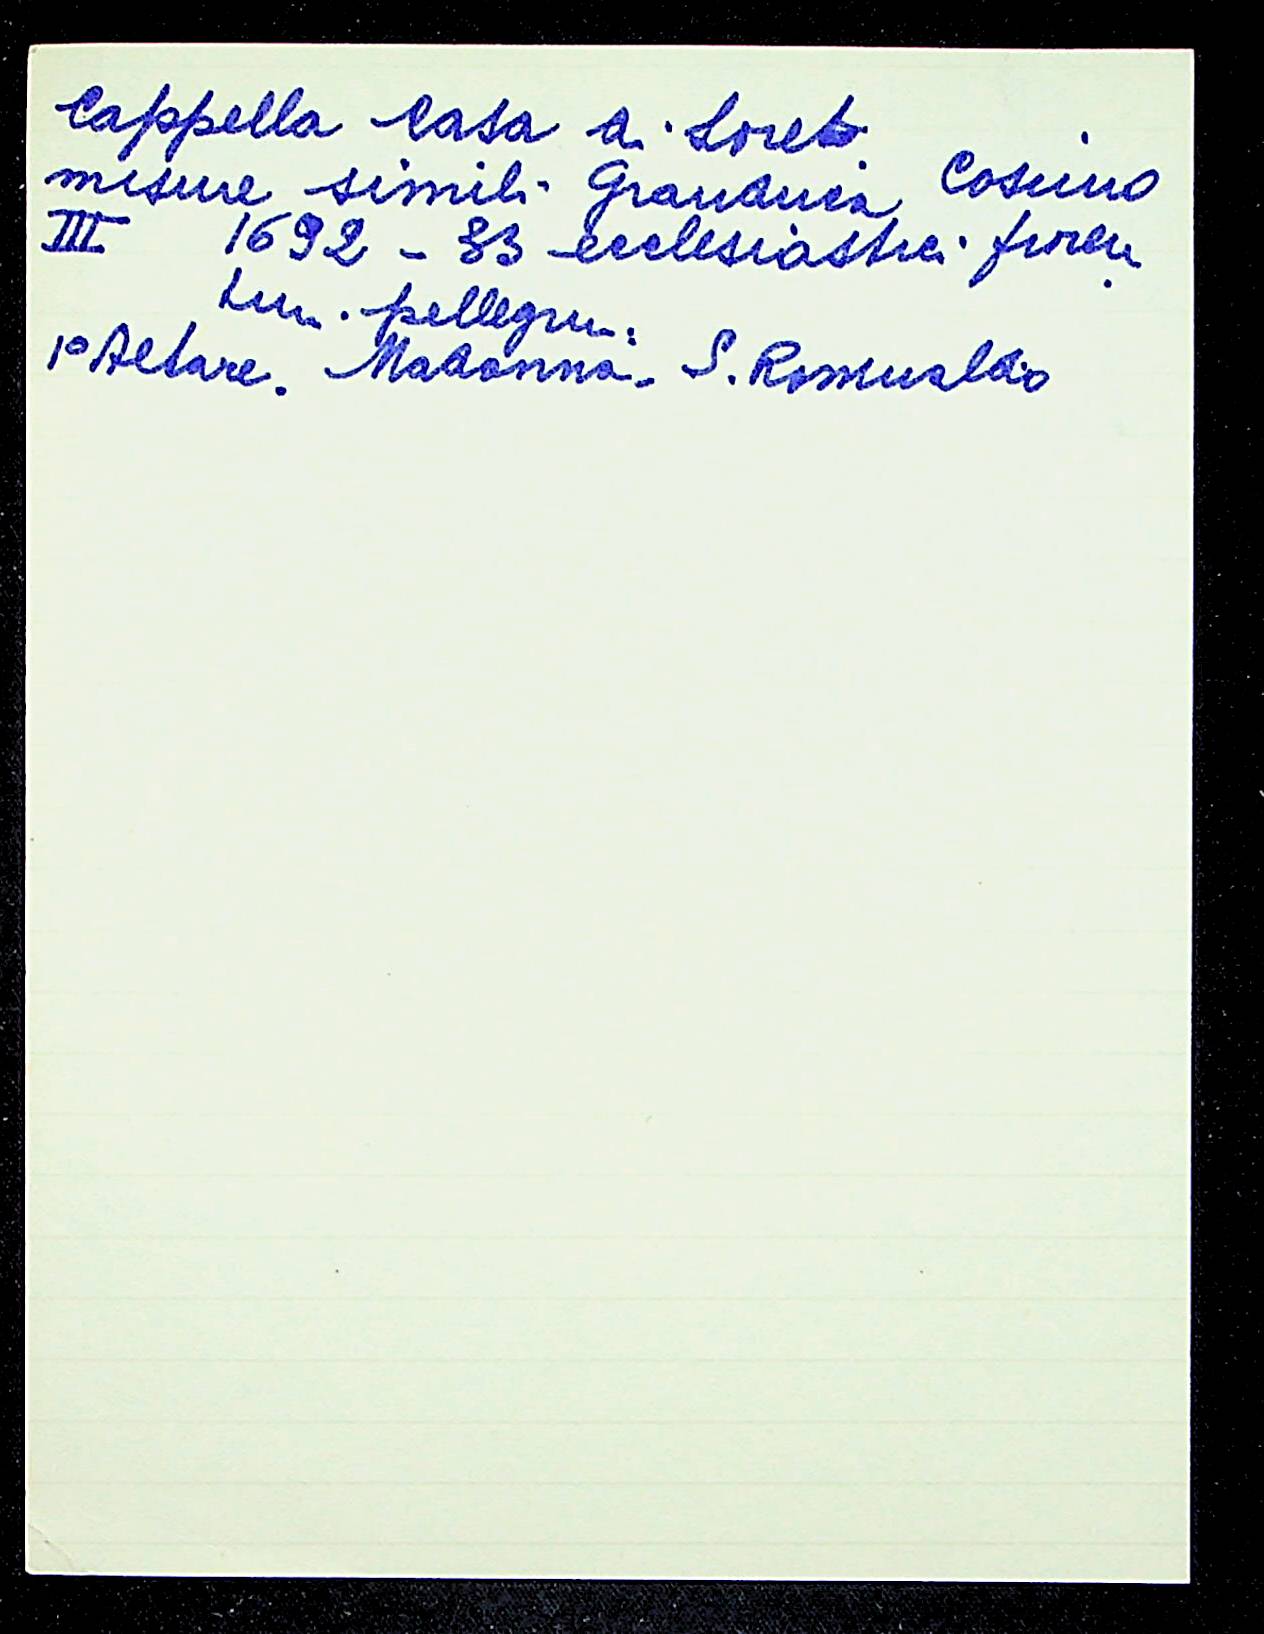 Cappella Casa di Loreto
misure simili Granduca Cosimo
III 1692 - 33 ecclesiastici fioren
tini pellegrini.
1° Altare. Madonna - S. Romualdo